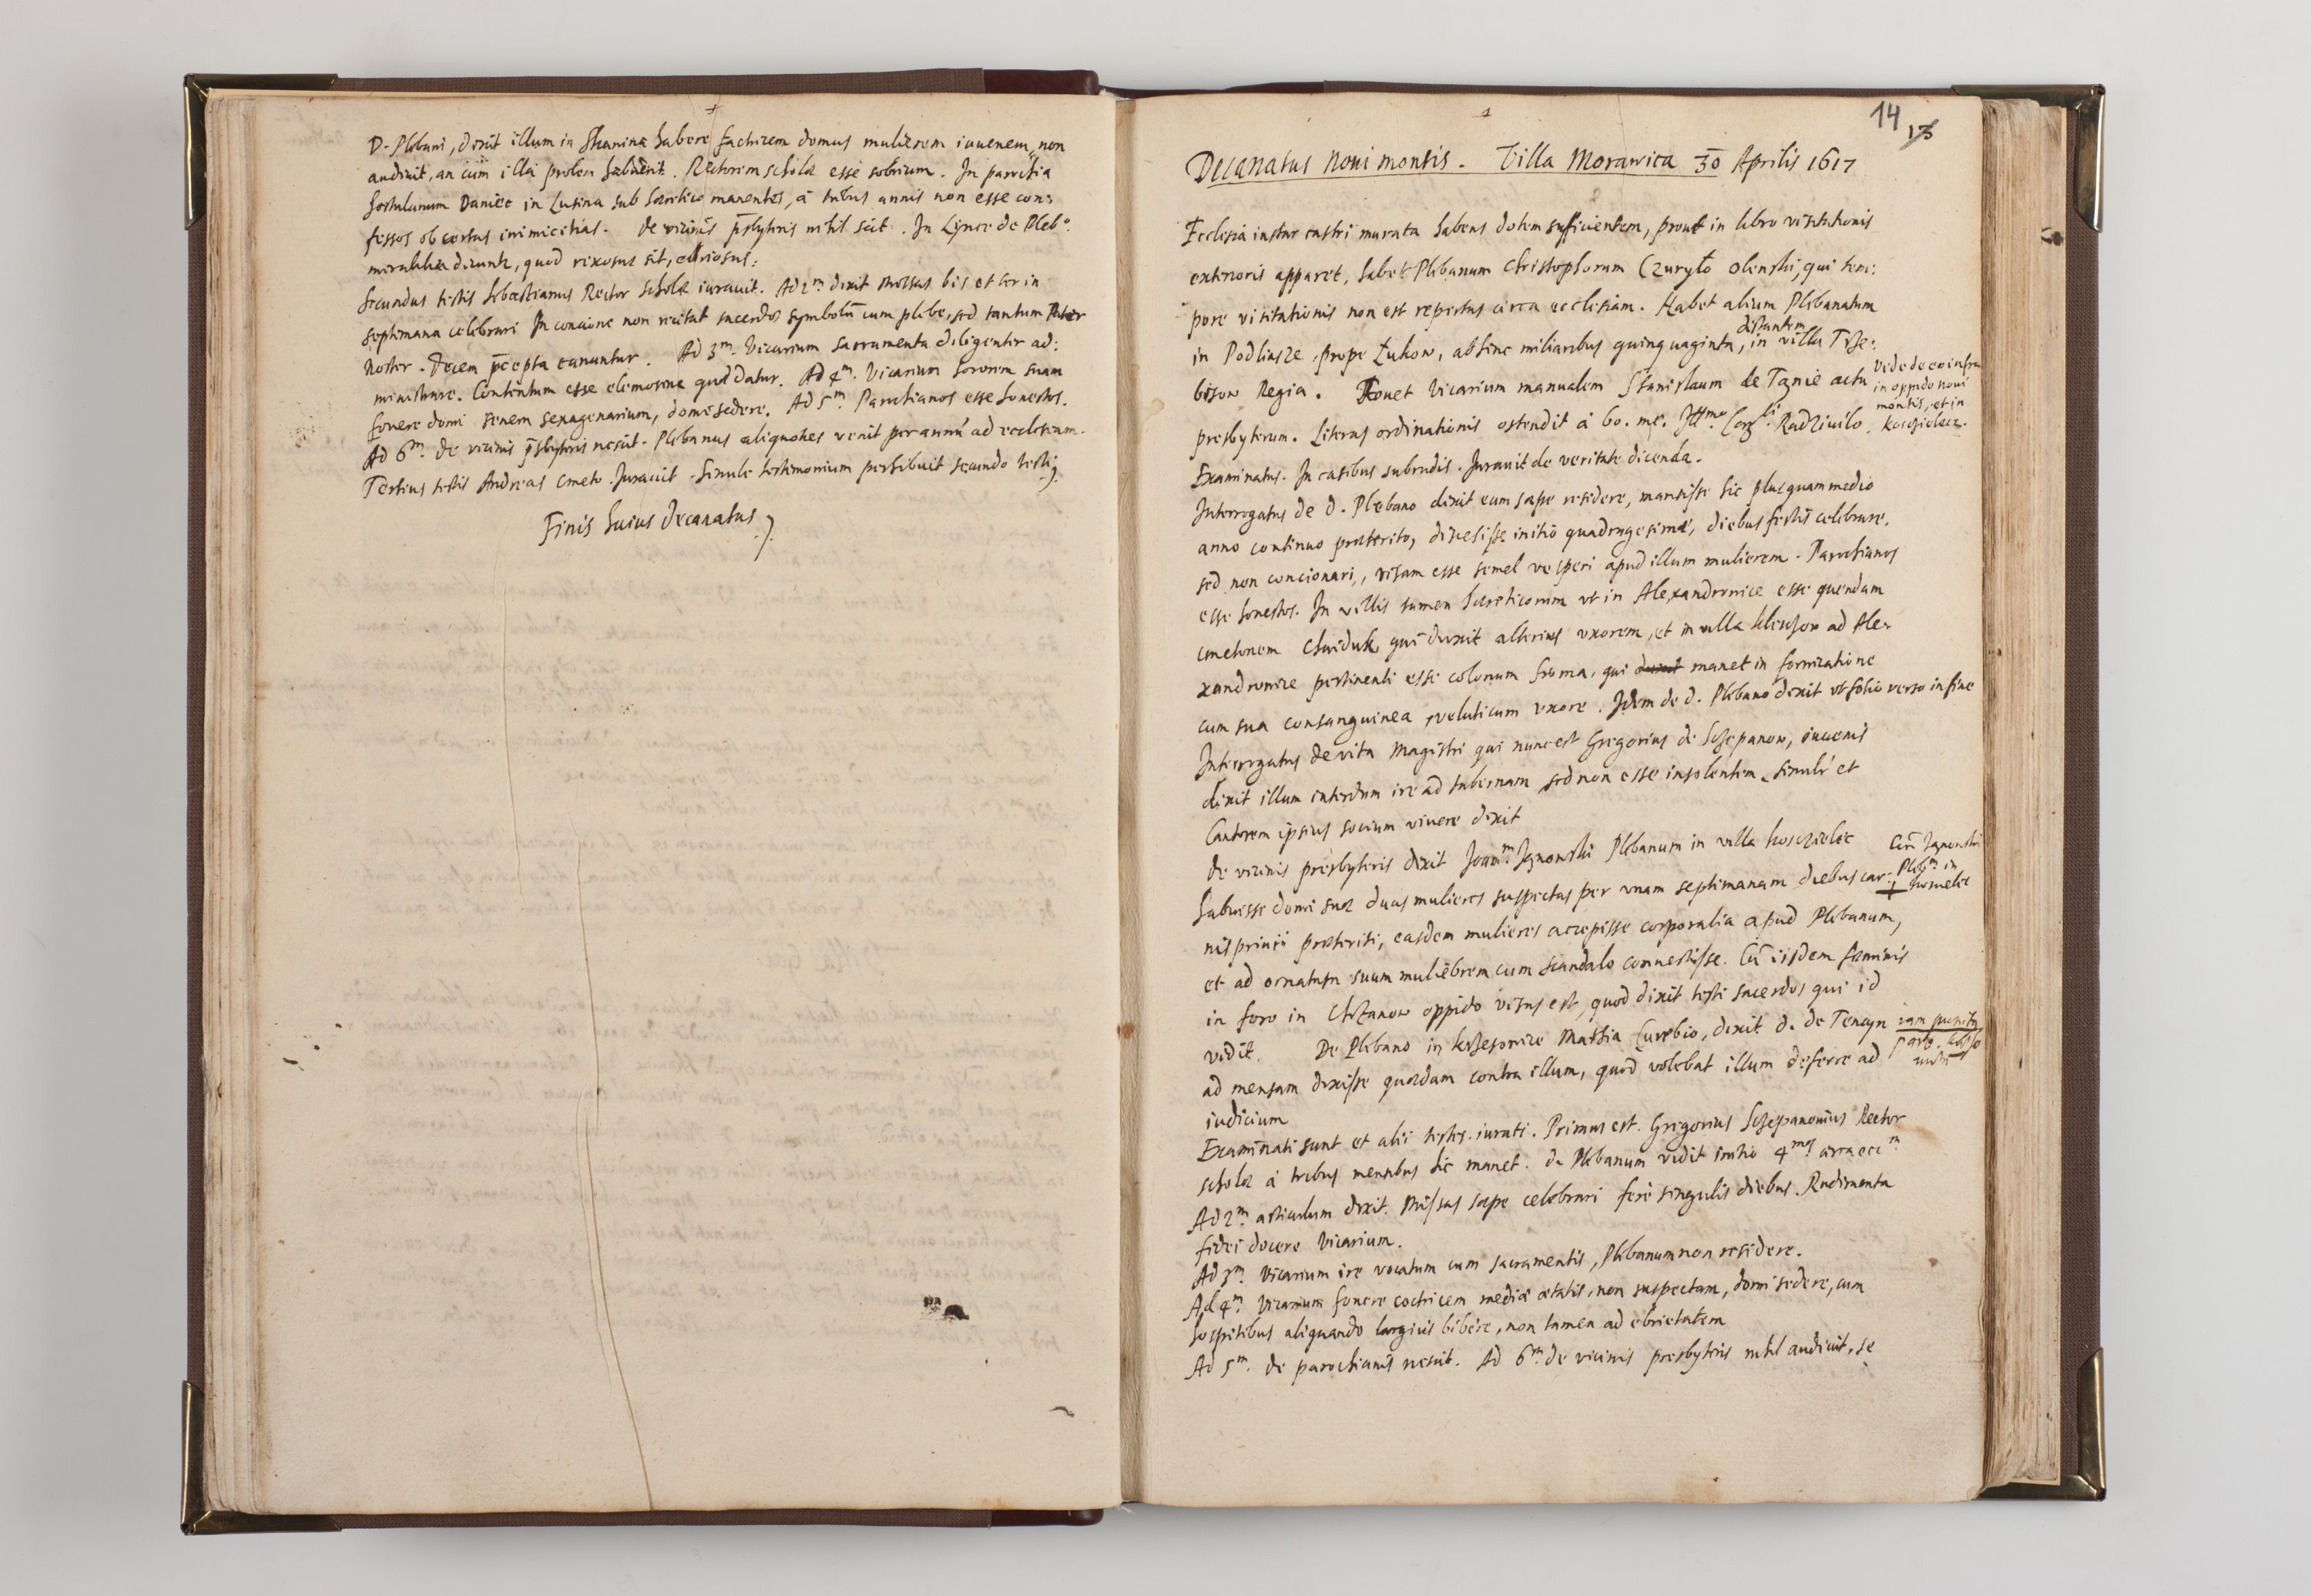 D. Plebani, dixit illum in Skanina habere factricem domus mulierem iuuenem, non
audiuit, an cum illa prolem habuerit. Rectorem scholæ esse sobrium. In parochia
hostulanum Daniec in Lusina sub hæretico manentes, à tribus annis non esse con:
fessos ob certas inimicitias. De vicinis pšbyteris nihil scit. In Lipnie de Plebº.
mirabilia dicunt, quod rixosus sit, ebriosus:
Secundus testis Sebastianus Rector scholæ iurauit. Ad 2m. dixit Missas bis et ter in
septimana celebrari In concione non recitat sacerdos symbolū cum plebe, sed tantum Pater
Noster. Decem p̄cepta canuntur. Ad 3m. Vicarium sacramenta diligenter ad:
ministrare. Contentum esse elemosina quæ datur. Ad 4m. Vicarium sororem suam
fouere domi senem sexagenarium, domi sedere. Ad 5m. Parochianos esse honestos.
Ad 6m. de vicinis pšbyteris nescit. Plebanus aliquoties venit per annū ad ecclesiam.
Tertius testis Andreas cmeto. Jurauit. Simile testimonium perhibuit secundo testi.
Finis huius decanatus
14 13
Decanatus Noui montis. Villa Morawica 30 Aprilis 1617
Ecclesia instar castri murata habens dotem sufficientem, prout in libro visitationis
exterioris apparet, habet Plebanum Christophorum Czuryło Olenski, qui tem:
pore visitationis non est repertus circa ecclesiam. Habet alium Plebanatum
in Podliasze, prope Łukow, abhinc miliaribus quinquaginta, distantem in villa Trze:
bisow Regia. Fouet Vicarium manualem Stanislaum de Tęnie actu
Vide de eo infra
in oppido noui
montis, et in
kosczielecz.
presbyterum. Literas ordinationis ostendit à bo. me. Illmo Carli Radziuilo
Examinatus. In casibus subrudis. Jurauit de veritate dicenda.
Interrogatus de D. Plebano dixit eum sæpe residere, mansisse hic plusquam medio
anno continuo præterito, discessisse initio quadragesimæ, diebus festis celebrare,
sed non concionari, visam esse semel vesperi apud illum mulierem. Parochianos
esse honestos. In villis tamen hæreticorum vt in Alexandrowice esse quendam
cmetonem Chwiduk qui duxit alterius vxorem, et in villa kleszow ad Ale:
xandrowice pertinenti esse colonum Sroma, qui manet in fornicatione
cum sua consanguinea, veluti cum vxore. Idem de D. Plebano dixit vt folio verso in fine
Interrogatus de vita Magistri qui nunc est Gregorius de Sczepanow, iuuenis
dixit illum interdum ire ad tabernam sed non esse insolentem. Simulr et
Cantorem ipsius socium viuere dixit
De vicinis presbyteris dixit Joanm. Zgnowski Plebanum in villa kosczielec
Cū Zgnowski
Plebm in
kosczielec
habuisse domi suæ duas mulieres suspectas per vnam septimanam diebus car:
nispriuii præteriti, easdem mulieres accepisse corporalia apud Plebanum,
et ad ornatum suum muliebrem cum scandalo connertisse. Cū iisdem fæminis
in foro in Chrzanow oppido visus est, quod dixit testi sacerdos qui id
vidit. De Plebano in krzeszowice Mathia Curebio, dixit D. de Tencyn
ad mensam dixisse quædam contra illum, quod volebat illum deferre ad
iudicium
Examinati sunt et alii testes iurati. Primus est. Gregorius Sczepanouius Rector
scholæ à tribus mensibus hic manet. D. Plebanum vidit initio 4mæ circa eccm
Ad 2m. articulum dixit. Missas sæpe celebrari ferè singulis diebus. Rudimenta
fidei docere Vicarium.
Ad 3m. Vicarium ire vocatum cum sacramentis, Plebanum non residere.
Ad 4m. Vicarium fouere coctricem mediæ ætatis, non suspectam, domi sedere, cum
hospitibus aliquando largius bibere, non tamen ad ebrietatem
Ad 5m. de parochianis nescit. Ad 6m. de vicinis presbyteris nihil audiuit, se